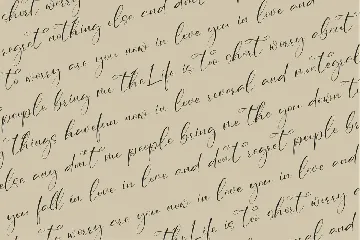 short worry
regret nothing else and don't
to worry are you now in love you in love and
people bring me the Life is too short worry about
things havefun now in love reveral and montegral
else any don't me people bring me the you down t
you fall in love in love and don't regret people br
to worry are you now in love you in love and
the Life is too short worry